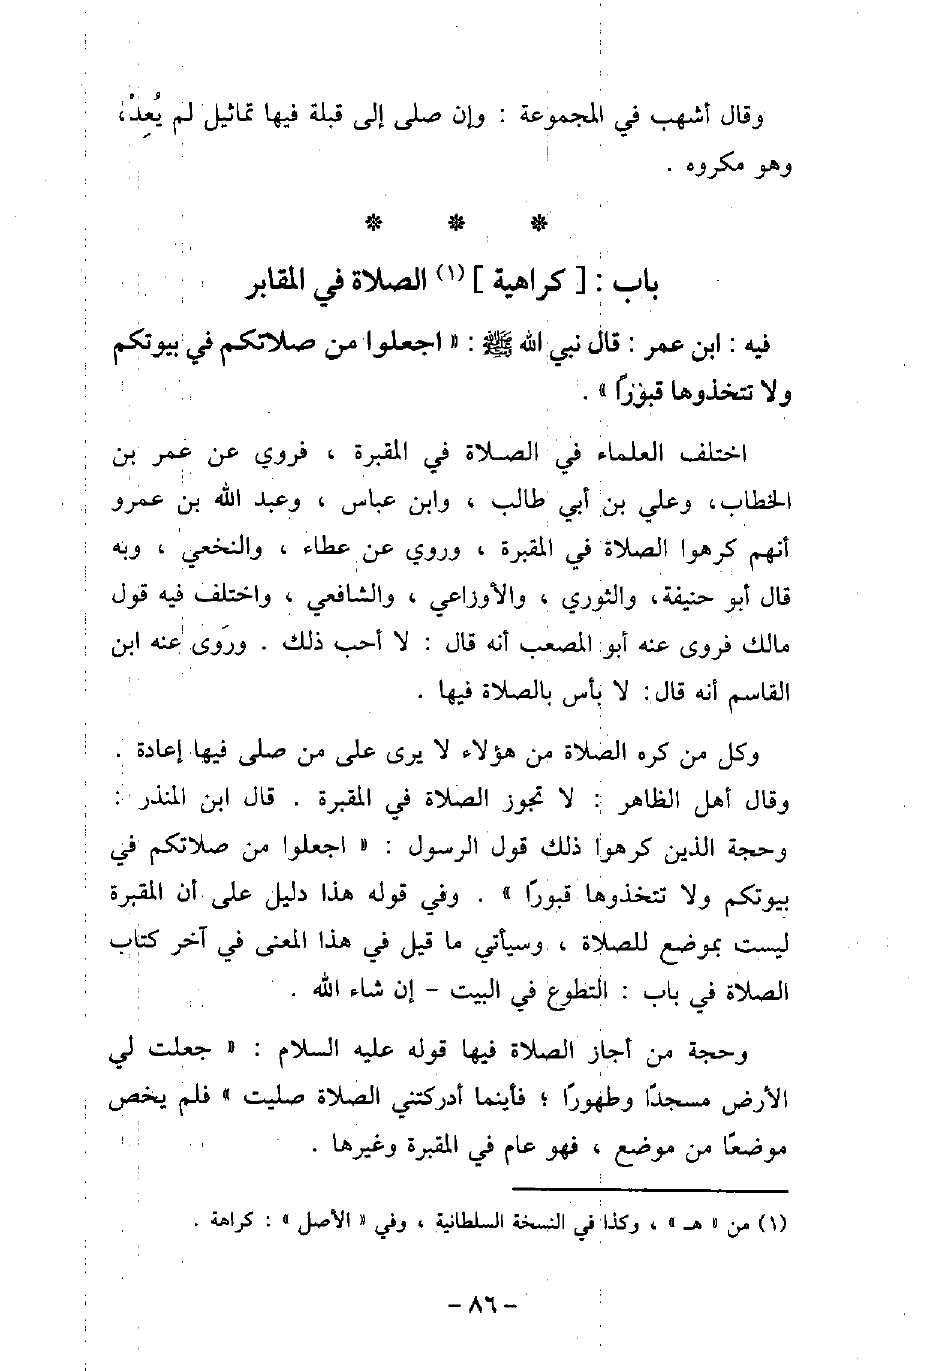 وقال أشهب في المجموعة : وإن صلى إلى قبلة فيها تماثيل لم يُعِدْ،
وهو مكروه .
* * *
باب : [ كراهية ] (١) الصلاة في المقابر
فيه : ابن عمر : قال نبي الله ﷺ : « اجعلوا من صلاتكم في بيوتكم
ولا تتخذوها قبورًا » .
اختلف العلماء في الصلاة في المقبرة ، فروي عن عمر بن
الخطاب، وعلي بن أبي طالب ، وابن عباس ، وعبد الله بن عمرو
أنهم كرهوا الصلاة في المقبرة ، وروي عن عطاء ، والنخعي ، وبه
قال أبو حنيفة، والثوري ، والأوزاعي ، والشافعي ، واختلف فيه قول
مالك فروى عنه أبو المصعب أنه قال : لا أحب ذلك . ورَوى عنه ابن
القاسم أنه قال: لا بأس بالصلاة فيها .
وكل من كره الصلاة من هؤلاء لا يرى على من صلى فيها إعادة .
وقال أهل الظاهر : لا تجوز الصلاة في المقبرة . قال ابن المنذر :
وحجة الذين كرهوا ذلك قول الرسول : « اجعلوا من صلاتكم في
بيوتكم ولا تتخذوها قبورًا » . وفي قوله هذا دليل على أن المقبرة
ليست بموضع للصلاة ، وسيأتي ما قيل في هذا المعنى في آخر كتاب
الصلاة في باب : التطوع في البيت - إن شاء الله .
وحجة من أجاز الصلاة فيها قوله عليه السلام : « جعلت لي
الأرض مسجدًا وطهورًا ؛ فأينما أدركتني الصلاة صليت » فلم يخص
موضعًا من موضع ، فهو عام في المقبرة وغيرها .
(١) من « هـ » ، وكذا في النسخة السلطانية ، وفي « الأصل » : كراهة .
- ٨٦ -